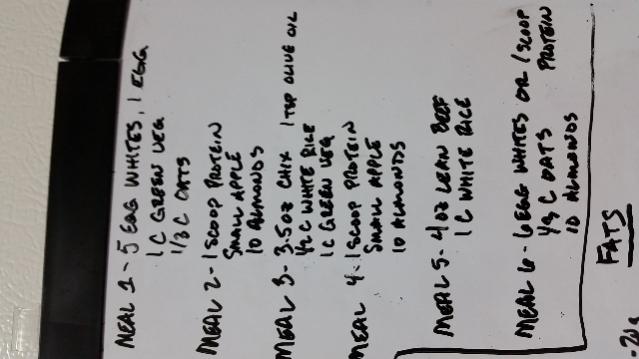 MEAL 1 - 5 EGG WHITES, 1 EGG
1 C GREEN VEG
1/3 C OATS
MEAL 2 - 1 SCOOP PROTEIN
SMALL APPLE
10 ALMONDS
MEAL 3 - 3.5OZ CHIX 1 TSP OLIVE OIL
1/2 C WHITE RICE
1C GREEN VEG
MEAL 4 - 1 SCOOP PROTEIN
SMALL APPLE
10 ALMONDS
MEAL 5 - 4OZ LEAN BEEF
1 C WHITE RICE
MEAL 6 - 6 EGG WHITES OR 1 SCOOP PROTEIN
C OATS
10 ALMONDS
FATS